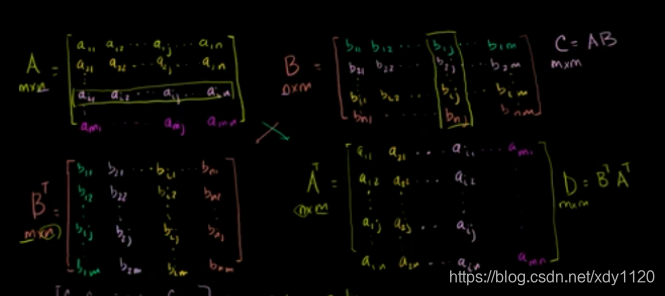 A
m×n
=
a₁₁ a₁₂ ... a₁ⱼ ... a₁ₙ
a₂₁ a₂₂ ... a₂ⱼ ... a₂ₙ
aᵢ₁ aᵢ₂ ... aᵢⱼ ... aᵢₙ
aₘ₁ ... aₘⱼ ... aₘₙ
B
n×m
=
b₁₁ b₁₂ ... b₁ⱼ ... b₁ₘ
b₂₁ b₂₂ ... b₂ⱼ ... b₂ₘ
bᵢ₁ bᵢ₂ ... bᵢⱼ ... bᵢₘ
bₙ₁ ... bₙⱼ ... bₙₘ
C = AB
m×m
Bᵀ
m×n
=
b₁₁ b₂₁ ... bᵢ₁ ... bₙ₁
b₁₂ b₂₂ ... bᵢ₂ ... bₙ₂
b₁ⱼ b₂ⱼ ... bᵢⱼ ... bₙⱼ
b₁ₘ b₂ₘ ... bᵢₘ ... bₙₘ
Aᵀ
n×m
=
a₁₁ a₂₁ ... aᵢ₁ ... aₘ₁
a₁₂ a₂₂ ... aᵢ₂
a₁ⱼ a₂ⱼ ... aᵢⱼ
a₁ₙ a₂ₙ ... aᵢₙ ... aₘₙ
D = BᵀAᵀ
m×m
https://blog.csdn.net/xdy1120